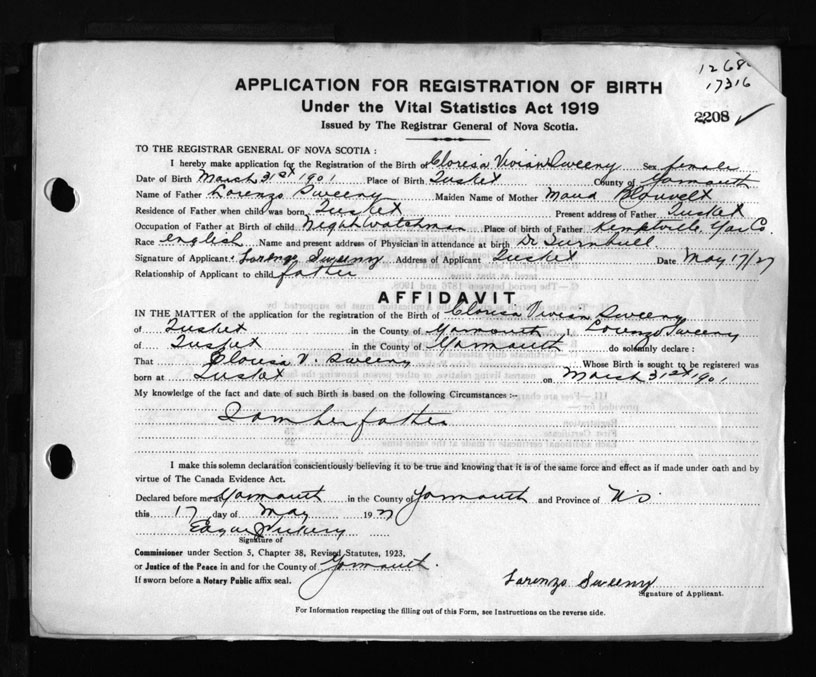 1268
17316
2208
APPLICATION FOR REGISTRATION OF BIRTH
Under the Vital Statistics Act 1919
Issued by The Registrar General of Nova Scotia.
TO THE REGISTRAR GENERAL OF NOVA SCOTIA :
I hereby make application for the Registration of the Birth of Vivian Sweeny Sex female
Date of Birth March 31st 1901 Place of Birth Tusket County of Yarmouth
Name of Father Lorenzo Sweeny Maiden Name of Mother Maud
Residence of Father when child was born Tusket Present address of Father Tusket
Occupation of Father at Birth of child Nightwatchman Place of birth of Father Kemptville, Yar Co.
Race english Name and present address of Physician in attendance at birth Dr Turnbull
Signature of Applicant Lorenzo Sweeny Address of Applicant Tusket Date May 17/27
Relationship of Applicant to child father
AFFIDAVIT
IN THE MATTER of the application for the registration of the Birth of Vivian Sweeny
of Tusket in the County of Yarmouth I, Lorenzo Sweeny
of Tusket in the County of Yarmouth do solemnly declare :
That V. Sweeny Whose Birth is sought to be registered was
born at Tusket on March 31st 1901
My knowledge of the fact and date of such Birth is based on the following Circumstances :-
I am her father
I make this solemn declaration conscientiously believing it to be true and knowing that it is of the same force and effect as if made under oath and by
virtue of The Canada Evidence Act.
Declared before me at Yarmouth in the County of Yarmouth and Province of N.S.
this 17 day of May 1927
Edgar
Signature of
Commissioner under Section 5, Chapter 38, Revised Statutes, 1923.
or Justice of the Peace in and for the County of Yarmouth.
If sworn before a Notary Public affix seal.
Lorenzo Sweeny
Signature of Applicant.
For Information respecting the filling out of this Form, see Instructions on the reverse side.